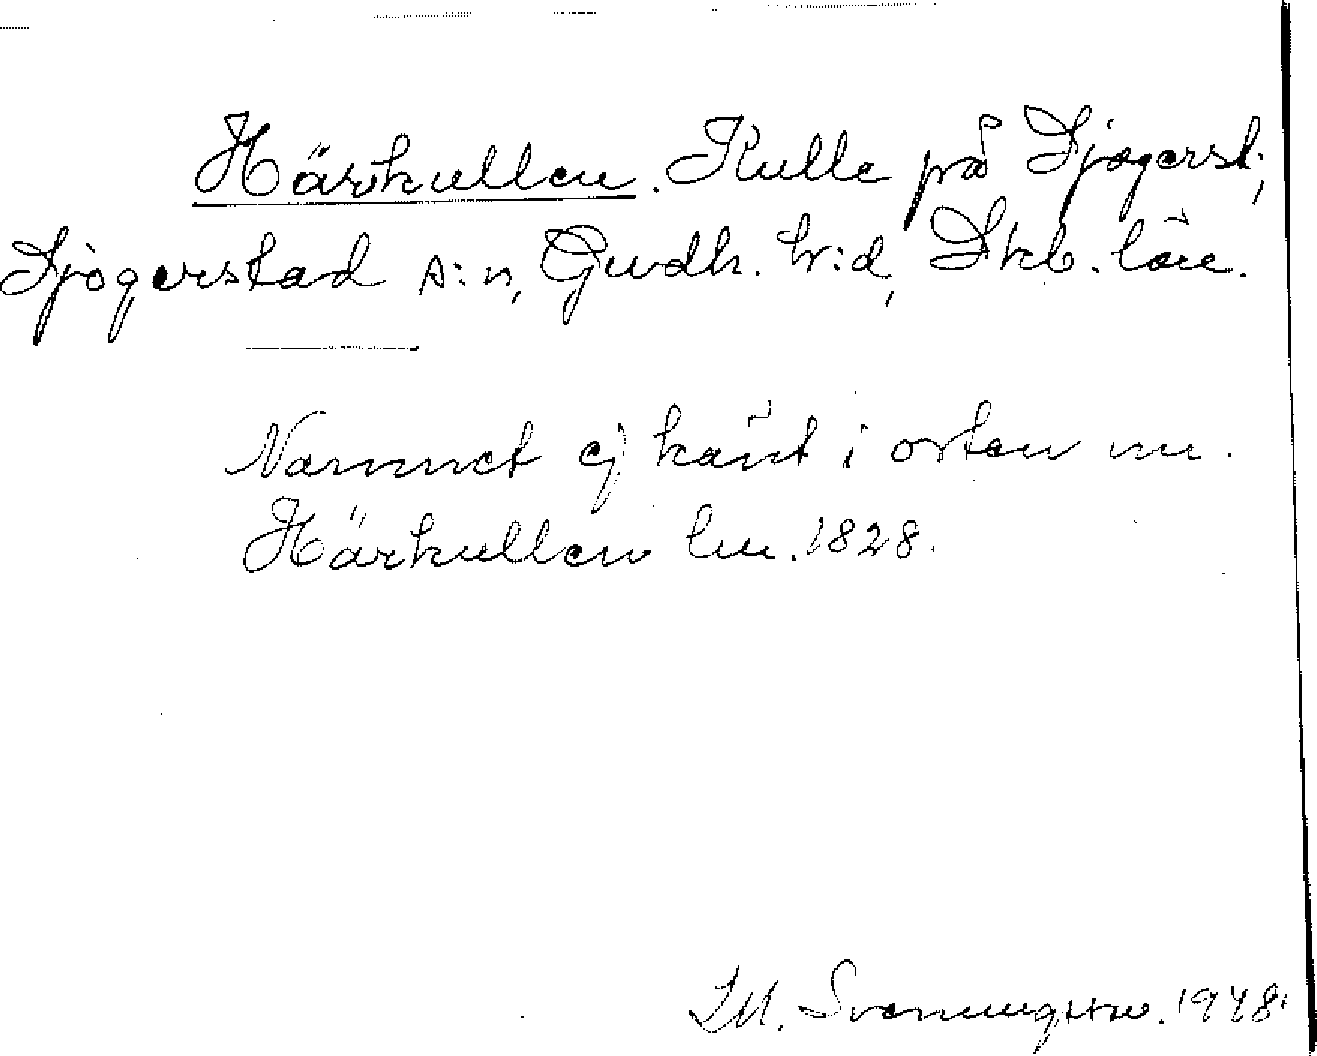 Härkullen. Kulle på Sjogerst.,
Sjogerstad s:n, Gudh. h:d, Skb. län.
Namnet ej känt i orten nu.
Härkullen lm. 1828.
Svenningsson. 1948.